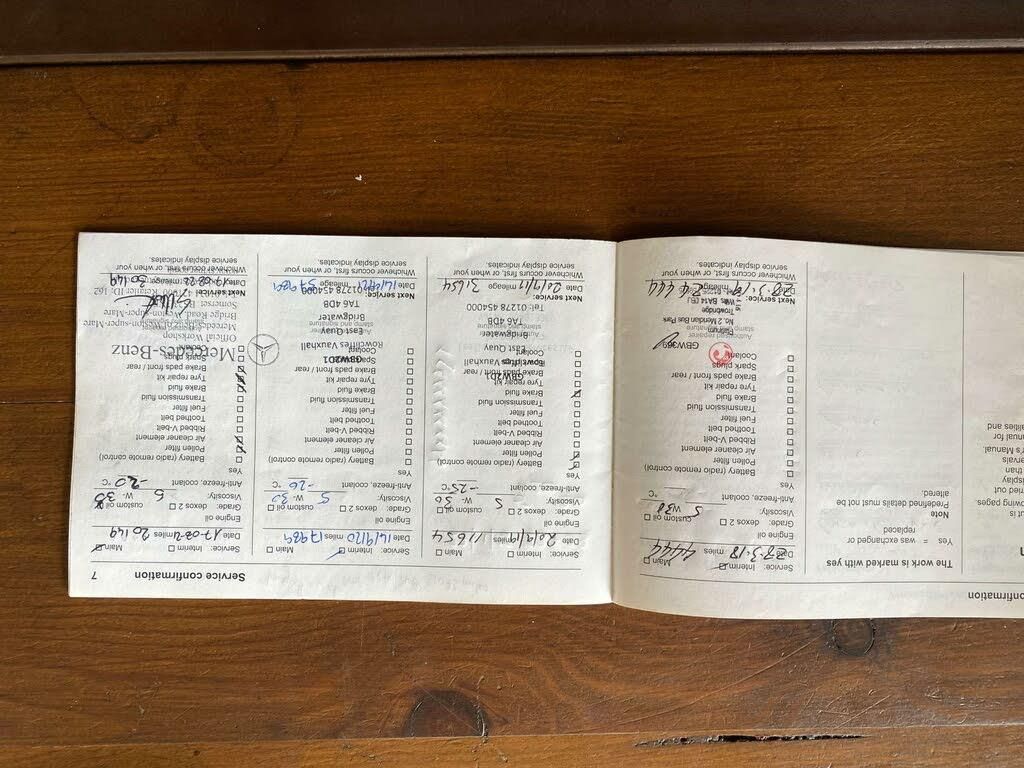 onfirmation
The work is marked with yes
Yes = was exchanged or
replaced
Note
Predefined details must not be
altered.
Service: Interim Main
Date 28.3.18 miles 4444
Engine oil
Grade: dexos 2 custom oil
Viscosity: 5 W 30
Anti-freeze, coolant °C
Yes
Battery (radio remote control)
Pollen filter
Air cleaner element
Ribbed V-belt
Toothed belt
Fuel filter
Transmission fluid
Brake fluid
Tyre repair kit
Brake pads front / rear
Spark plugs
Coolant
GBW369
Authorised repairer
stamp and signature
Platinum
No. 2 Meridian Bus Park
Trowbridge
Next service:
Whichever occurs first, or when your
service display indicates.
Service confirmation
7
Service: Interim Main
Date 20/9/19 miles 11654
Engine oil
Grade: dexos 2 custom oil
Viscosity: 5 W 30
Anti-freeze, coolant -25 °C
Yes
Battery (radio remote control)
Pollen filter
Air cleaner element
Ribbed V-belt
Toothed belt
Fuel filter
Transmission fluid
Brake fluid
Tyre repair kit
Brake pads front / rear
Coolant
GBW2D1
Rowcliffes Vauxhall
East Quay
Bridgwater
TA6 4DB
Tel: 01278 454000
Next service:
Date mileage 31654
Whichever occurs first, or when your
service display indicates.
Service: Interim Main
Date 14/9/20 miles 17989
Engine oil
Grade: dexos 2 custom oil
Viscosity: 5 W 30
Anti-freeze, coolant -26 °C
Yes
Battery (radio remote control)
Pollen filter
Air cleaner element
Ribbed V-belt
Toothed belt
Fuel filter
Transmission fluid
Brake fluid
Tyre repair kit
Brake pads front / rear
Coolant
GBW2D1
Rowcliffes Vauxhall
East Quay
Bridgwater
TA6 4DB
01278 454000
Next service:
Date 14/9/21 mileage 37989
Whichever occurs first, or when your
service display indicates.
Service: Interim Main
Date miles 20149
Engine oil
Grade: dexos 2 custom oil
Viscosity: 5 W- 30
Anti-freeze, coolant -20 °C
Yes
Battery (radio remote control)
Pollen filter
Air cleaner element
Ribbed V-belt
Toothed belt
Fuel filter
Transmission fluid
Brake fluid
Tyre repair kit
Brake pads front / rear
Spark plugs
Coolant
Mercedes-Benz
Official Workshop
Mercedes-Benz of Weston-super-Mare
Bridge Road, Weston-super-Mare
Next service:
Date 17-08-22 mileage 30149
Whichever occurs first, or when your
service display indicates.